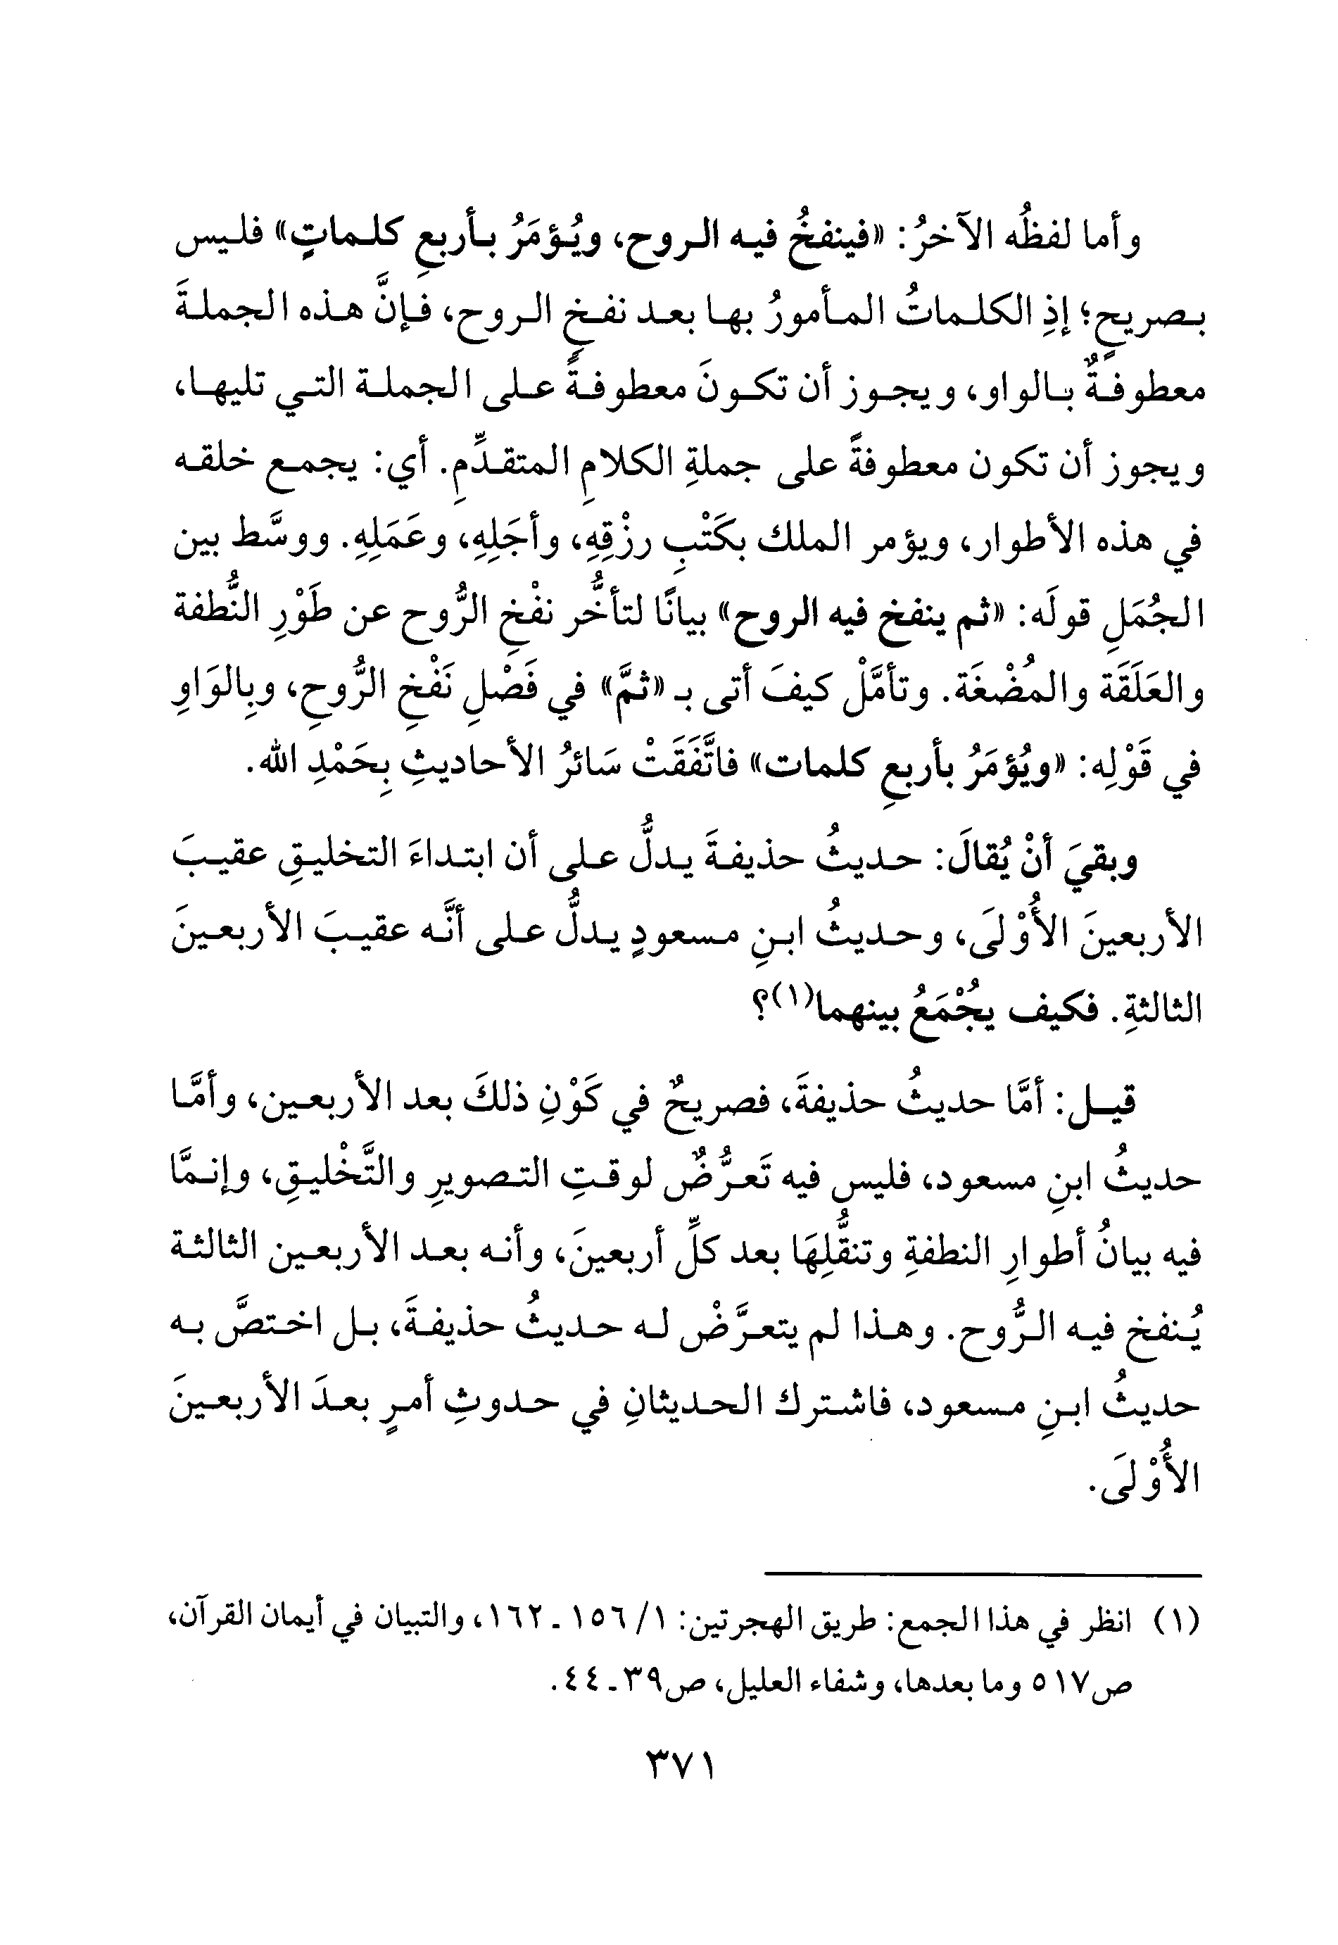 وأما لفظُه الآخرُ: «فينفخُ فيه الروح، ويُؤمَرُ بأربعِ كلماتٍ» فليس
بصريحٍ؛ إذِ الكلماتُ المأمورُ بها بعد نفخِ الروح، فإنَّ هذه الجملةَ
معطوفةٌ بالواو، ويجوز أن تكونَ معطوفةً على الجملة التي تليها،
ويجوز أن تكون معطوفةً على جملةِ الكلامِ المتقدِّمِ. أي: يجمع خلقه
في هذه الأطوار، ويؤمر الملك بكَتْبِ رزْقِهِ، وأجَلِهِ، وعَمَلِهِ. ووسَّط بين
الجُمَلِ قولَه: «ثم ينفخ فيه الروح» بيانًا لتأخُّر نفْخِ الرُّوح عن طَوْرِ النُّطفة
والعَلَقَة والمُضْغَة. وتأمَّلْ كيفَ أتى بـ «ثمَّ» في فَصْلِ نَفْخِ الرُّوحِ، وبِالوَاوِ
في قَوْلِه: «ويُؤمَرُ بأربعِ كلمات» فاتَّفَقَتْ سَائرُ الأحاديثِ بِحَمْدِ الله.
وبقيَ أنْ يُقالَ: حديثُ حذيفةَ يدلُّ على أن ابتداءَ التخليقِ عقيبَ
الأربعينَ الأُوْلَى، وحديثُ ابنِ مسعودٍ يدلُّ على أنَّه عقيبَ الأربعينَ
الثالثةِ. فكيف يجُمْعَُ بينهما(١)؟
قيل: أمَّا حديثُ حذيفةَ، فصريحٌ في كَوْنِ ذلكَ بعد الأربعين، وأمَّا
حديثُ ابنِ مسعود، فليس فيه تَعرُّضٌ لوقتِ التصويرِ والتَّخْليقِ، وإنمَّا
فيه بيانُ أطوارِ النطفةِ وتنقُّلِهَا بعد كلِّ أربعينَ، وأنه بعد الأربعين الثالثة
يُنفخ فيه الرُّوح. وهذا لم يتعرَّضْ له حديثُ حذيفةَ، بل اختصَّ به
حديثُ ابنِ مسعود، فاشترك الحديثانِ في حدوثِ أمرٍ بعدَ الأربعينَ
الأُوْلَى.
(١) انظر في هذا الجمع: طريق الهجرتين: ١/ ١٥٦ ـ ١٦٢، والتبيان في أيمان القرآن،
ص٥١٧ وما بعدها، وشفاء العليل، ص٣٩ ـ ٤٤.
٣٧١